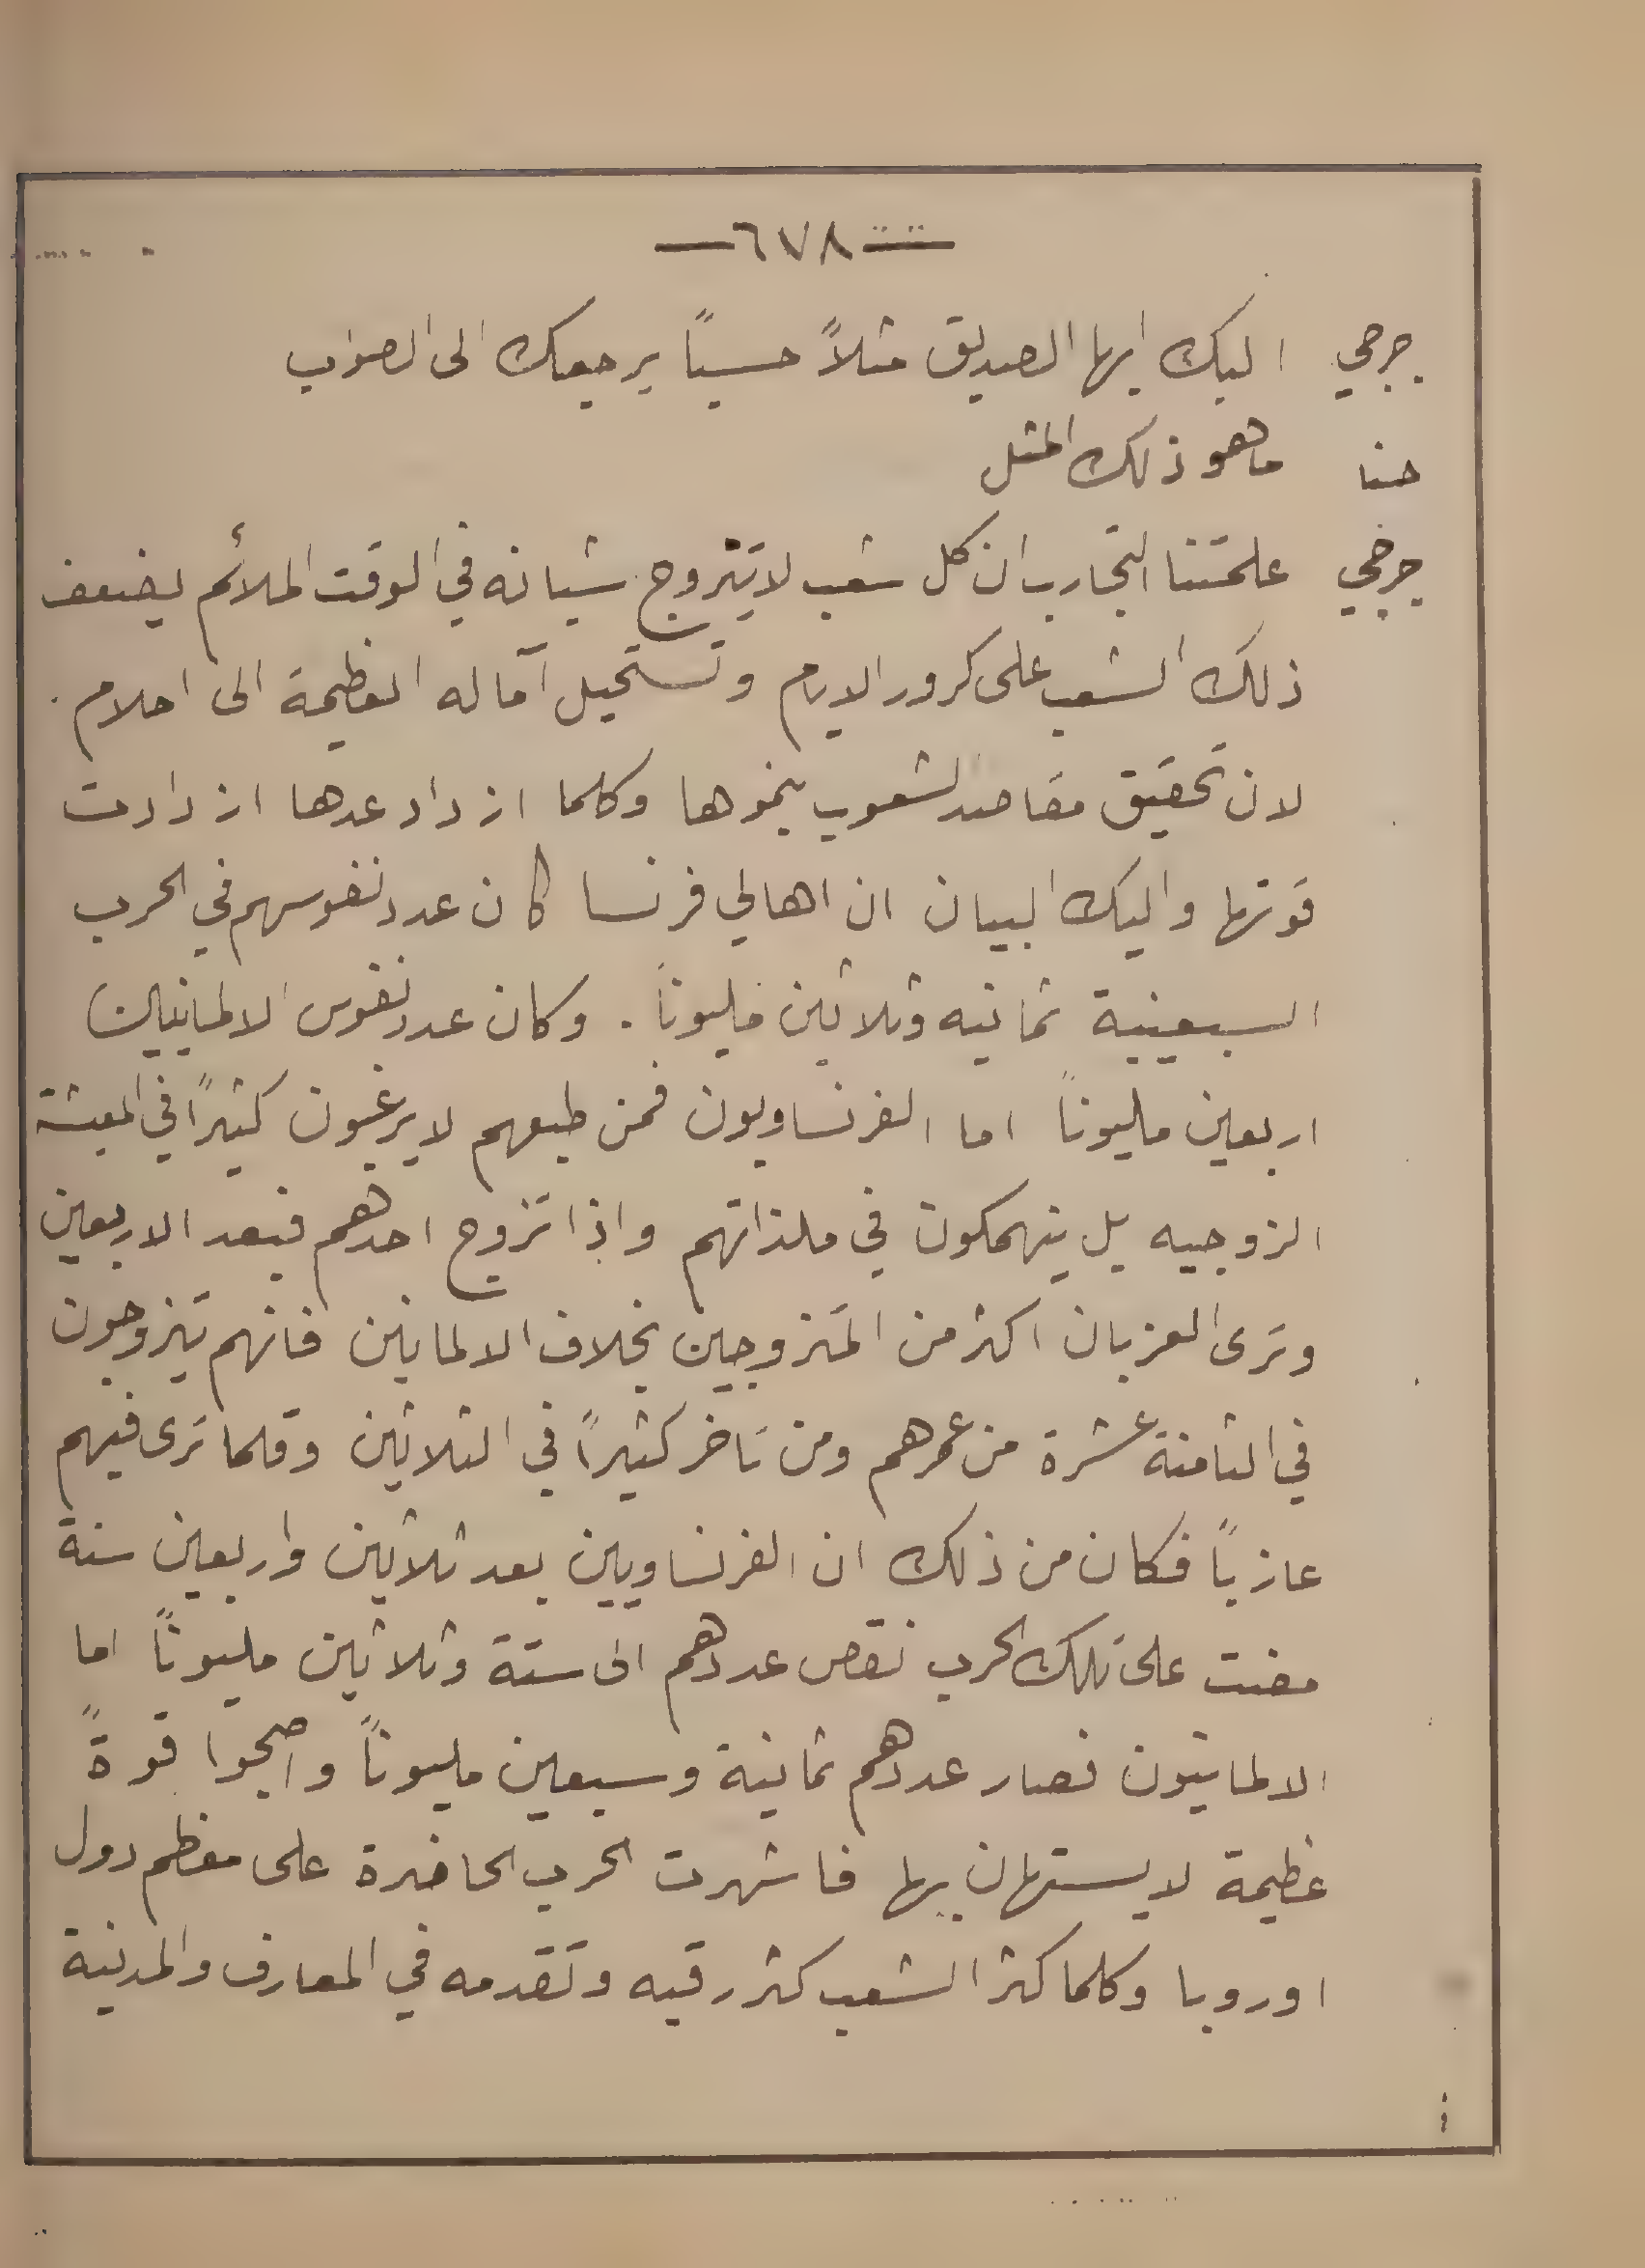 —٦٧٨—
جرجي اليك ايها الصديق مثلاً حسيناً يرجعك الى الصواب
حنا ما هو ذلك المثل
جرجي علمتنا التجارب ان كل شعب لا يتزوج شبانه في الوقت الملائم يضعف
ذلك الشعب على كرور الايام وتستحيل آماله العظيمة الى احلام .
لان تحقيق مقاصد الشعوب بنموها وكلما ازداد عدها ازدادت
قوتها واليك البيان ان اهالي فرنسا كان عدد نفوسهم في الحرب
السبعينية ثمانيه وثلاثين مليوناً . وكان عدد نفوس الالمانيين
اربعين مليوناً اما الفرنساويون فمن طبعهم لا يرغبون كثيراً في المعيشة
الزوجيه بل ينهمكون في ملذاتهم واذا تزوج احدهم فبعد الاربعين
وترى العزبان اكثر من المتزوجين بخلاف الالمانين فانهم يتزوجون
في الثامنة عشرة من عمرهم ومن تاخر كثيراً في الثلاثين وقلما ترى فيهم
عازباً فكان من ذلك ان الفرنساويين بعد ثلاثين واربعين سنة
مضت على تلك الحرب نقص عددهم الى ستة وثلاثين مليوناً اما
الالمانيون فصار عددهم ثمانية وسبعين مليوناً واصبحوا قوةً
عظيمة لا يستهان بها فاشهرت الحرب الحاضرة على معظم دول
اوروبا وكلما كثر الشعب كثر رقيه وتقدمه في المعارف والمدنية